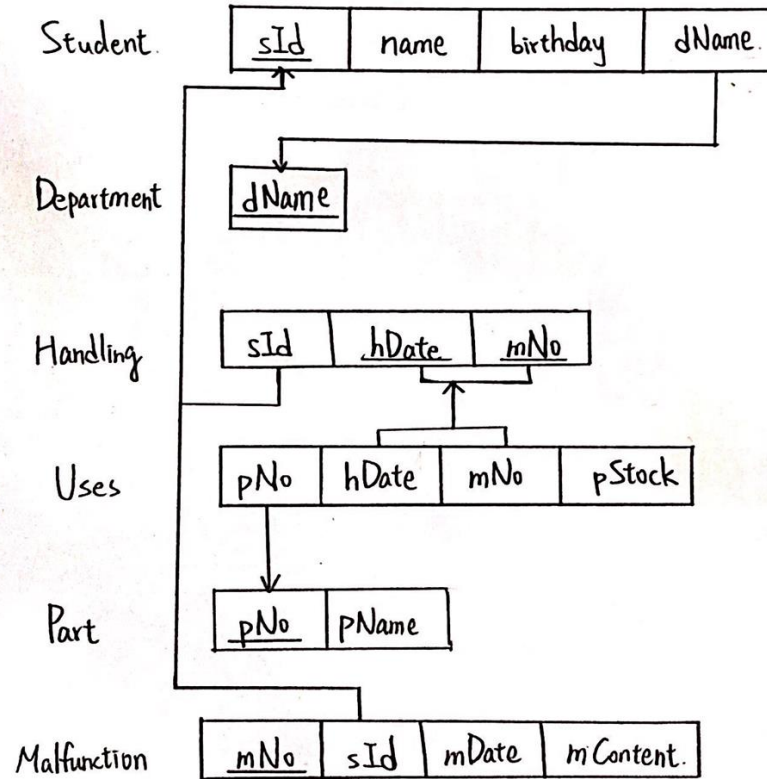 Student. sId name birthday dName.
Department dName
Handling sId hDate mNo
Uses pNo hDate mNo pStock
Part pNo pName
Malfunction mNo sId mDate mContent.